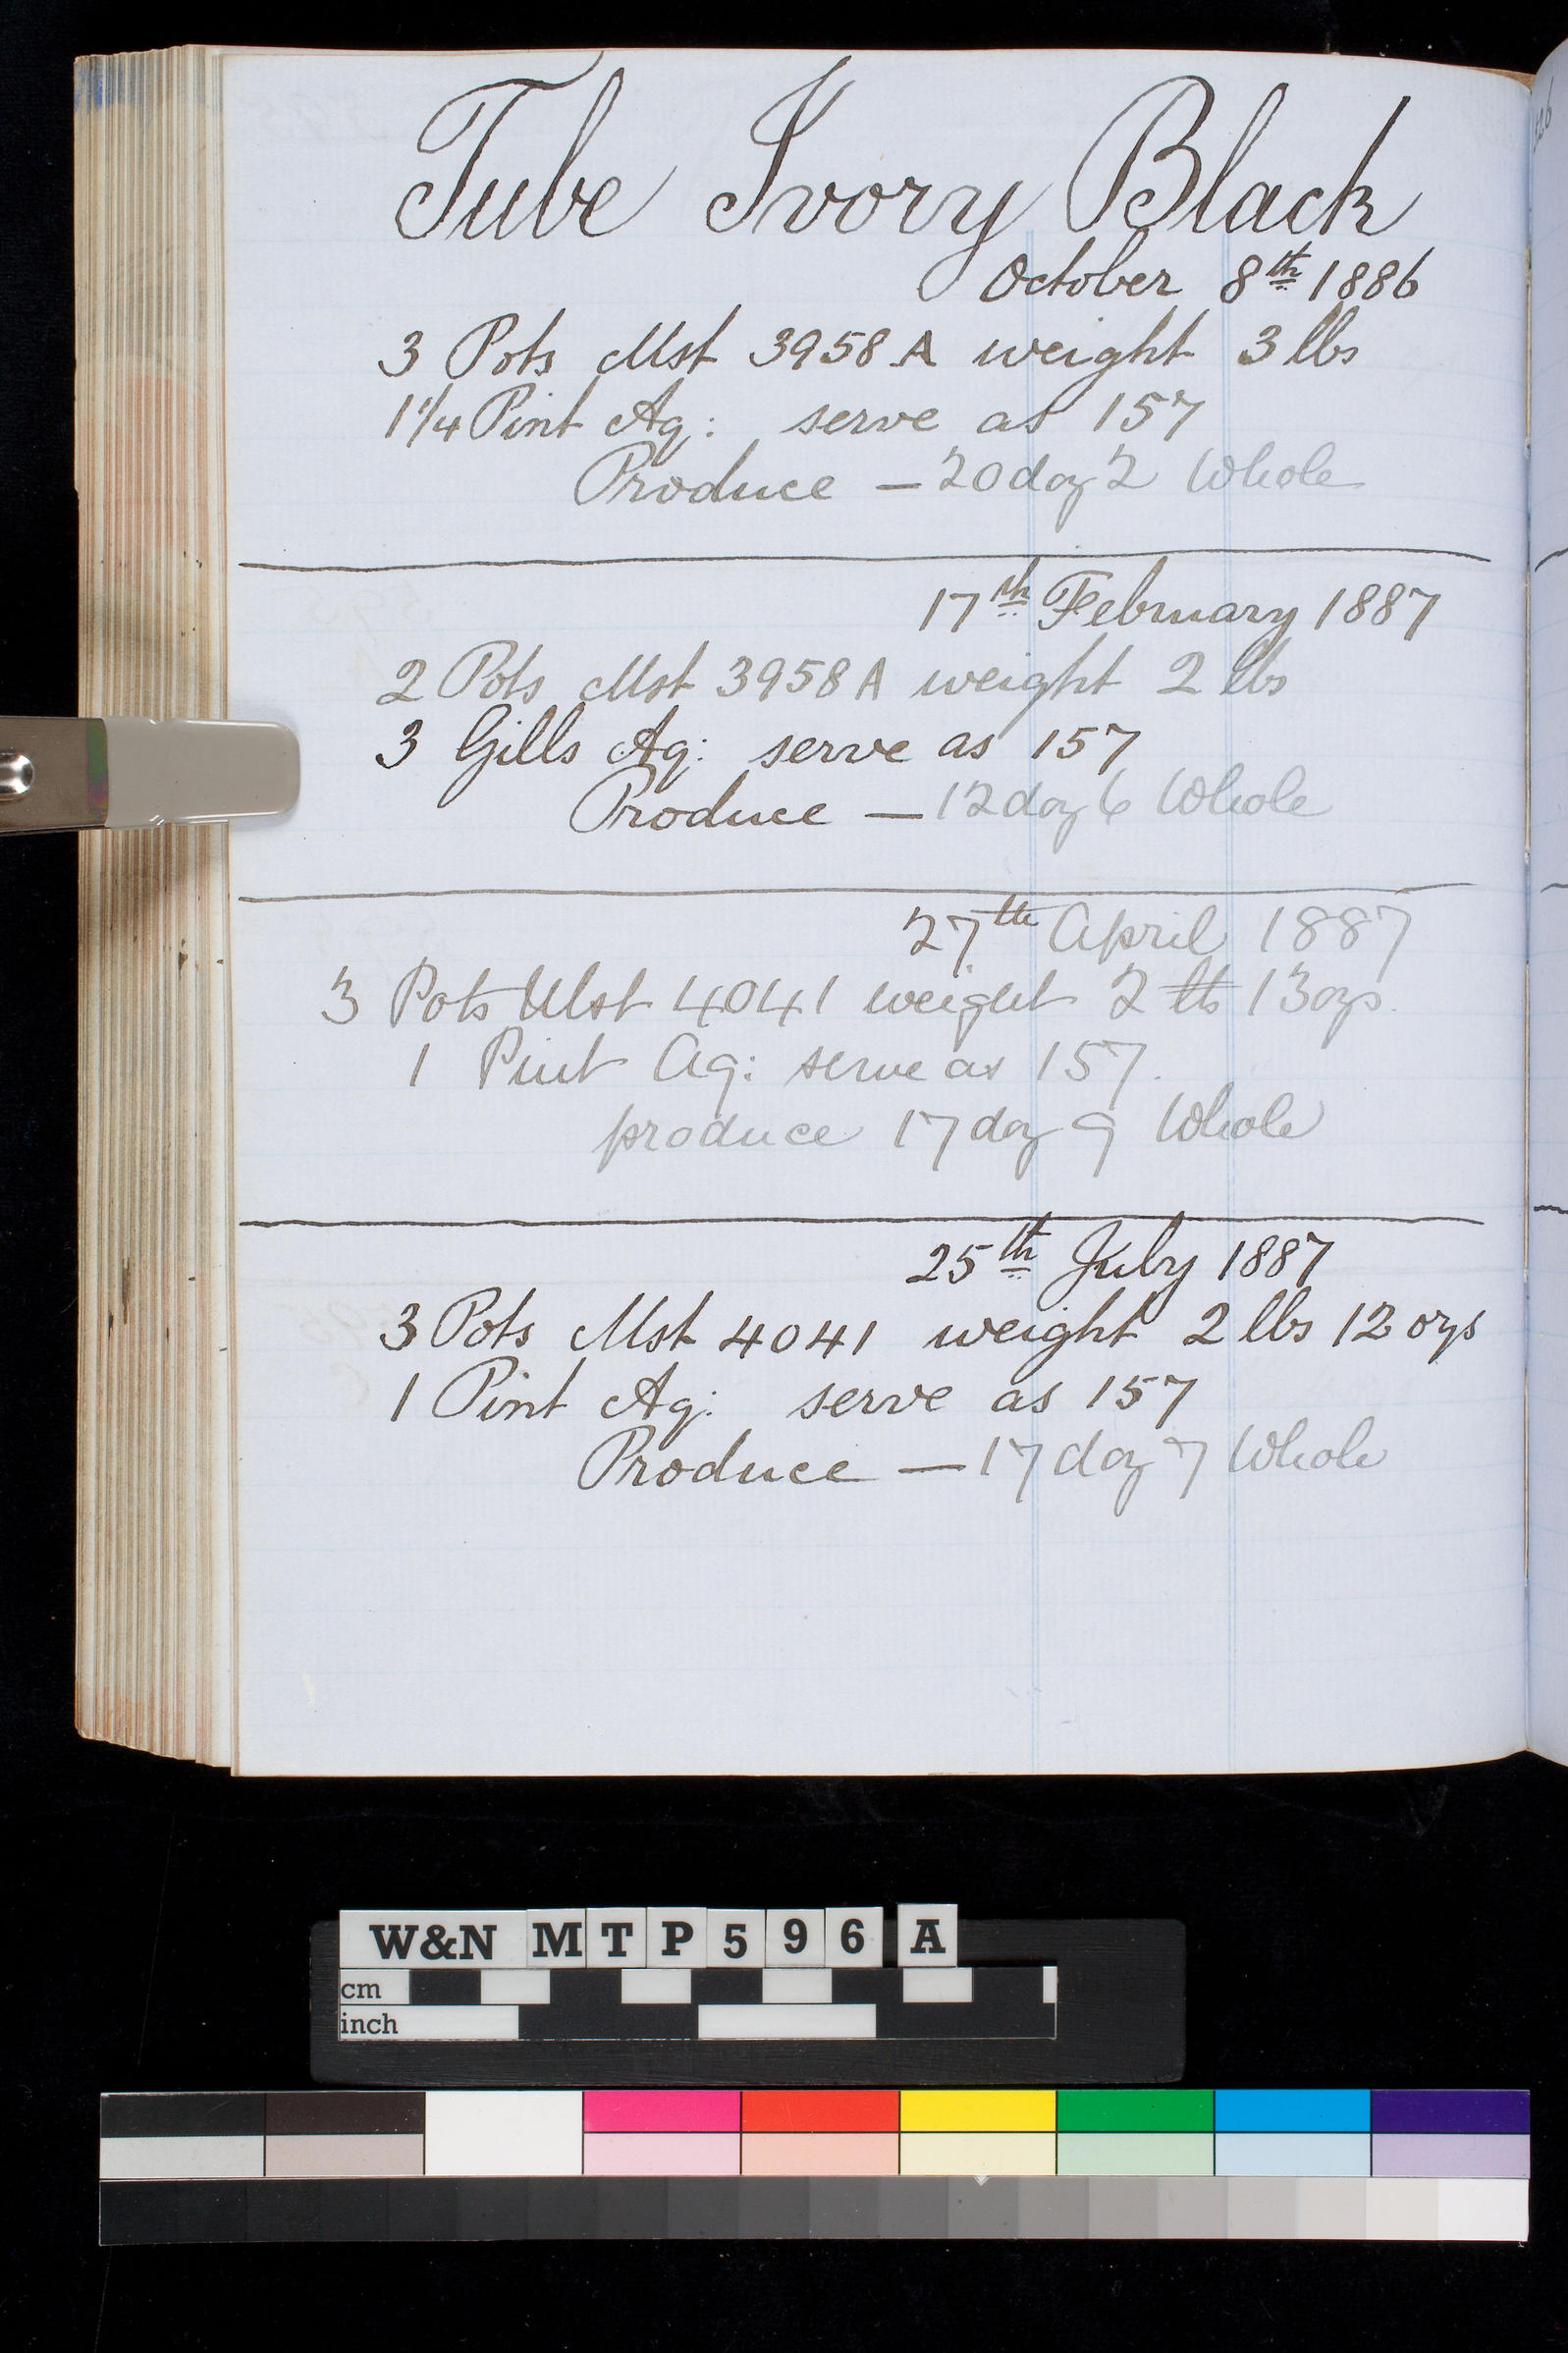 Tube Ivory Black
October 8th 1886
3 Pots Mst 3958 A weight 3 lbs
1 1/4 Pint Aq: serve as 157
Produce — 20 doz 2 Whole
17th February 1887
2 Pots Mst 3958 A weight 2 lbs
3 Gills Aq: serve as 157
Produce — 12 doz 6 Whole
27th April 1887
3 Pots Mst 4041 weight 2 lb 13 ozs.
1 Pint Aq: serve as 157.
produce 17 doz 9 Whole
25th July 1887
3 Pots Mst 4041 weight 2 lbs 12 ozs
1 Pint Aq: serve as 157
Produce — 17 doz 7 Whole
W&N MTP596 A
cm
inch